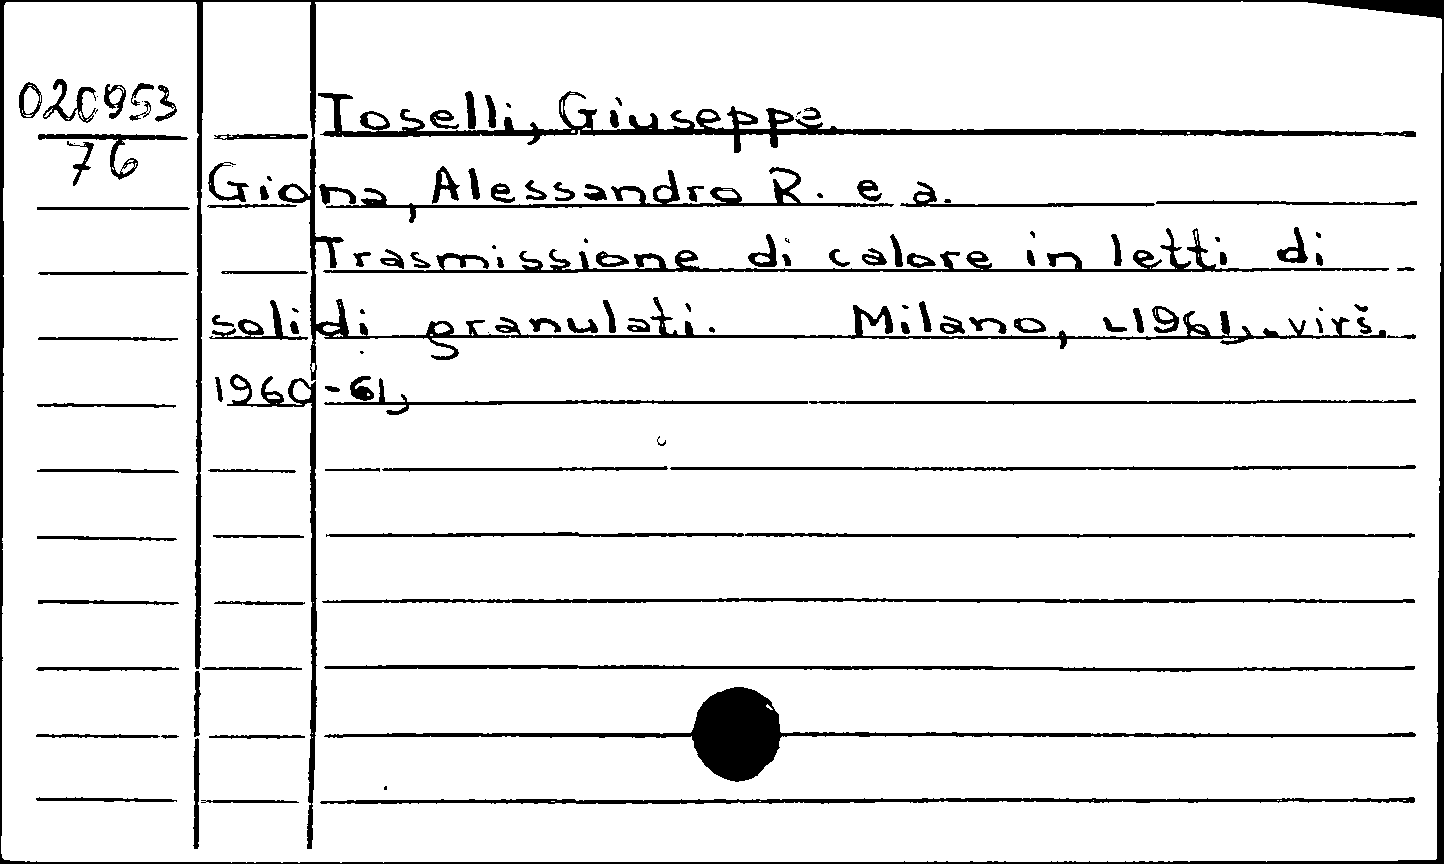 020953
76
Toselli, Giuseppe.
Giona, Alessandro R. e a.
Trasmissione di calore in letti di
solidi granulati. Milano, [1961], virš.
1960-61,